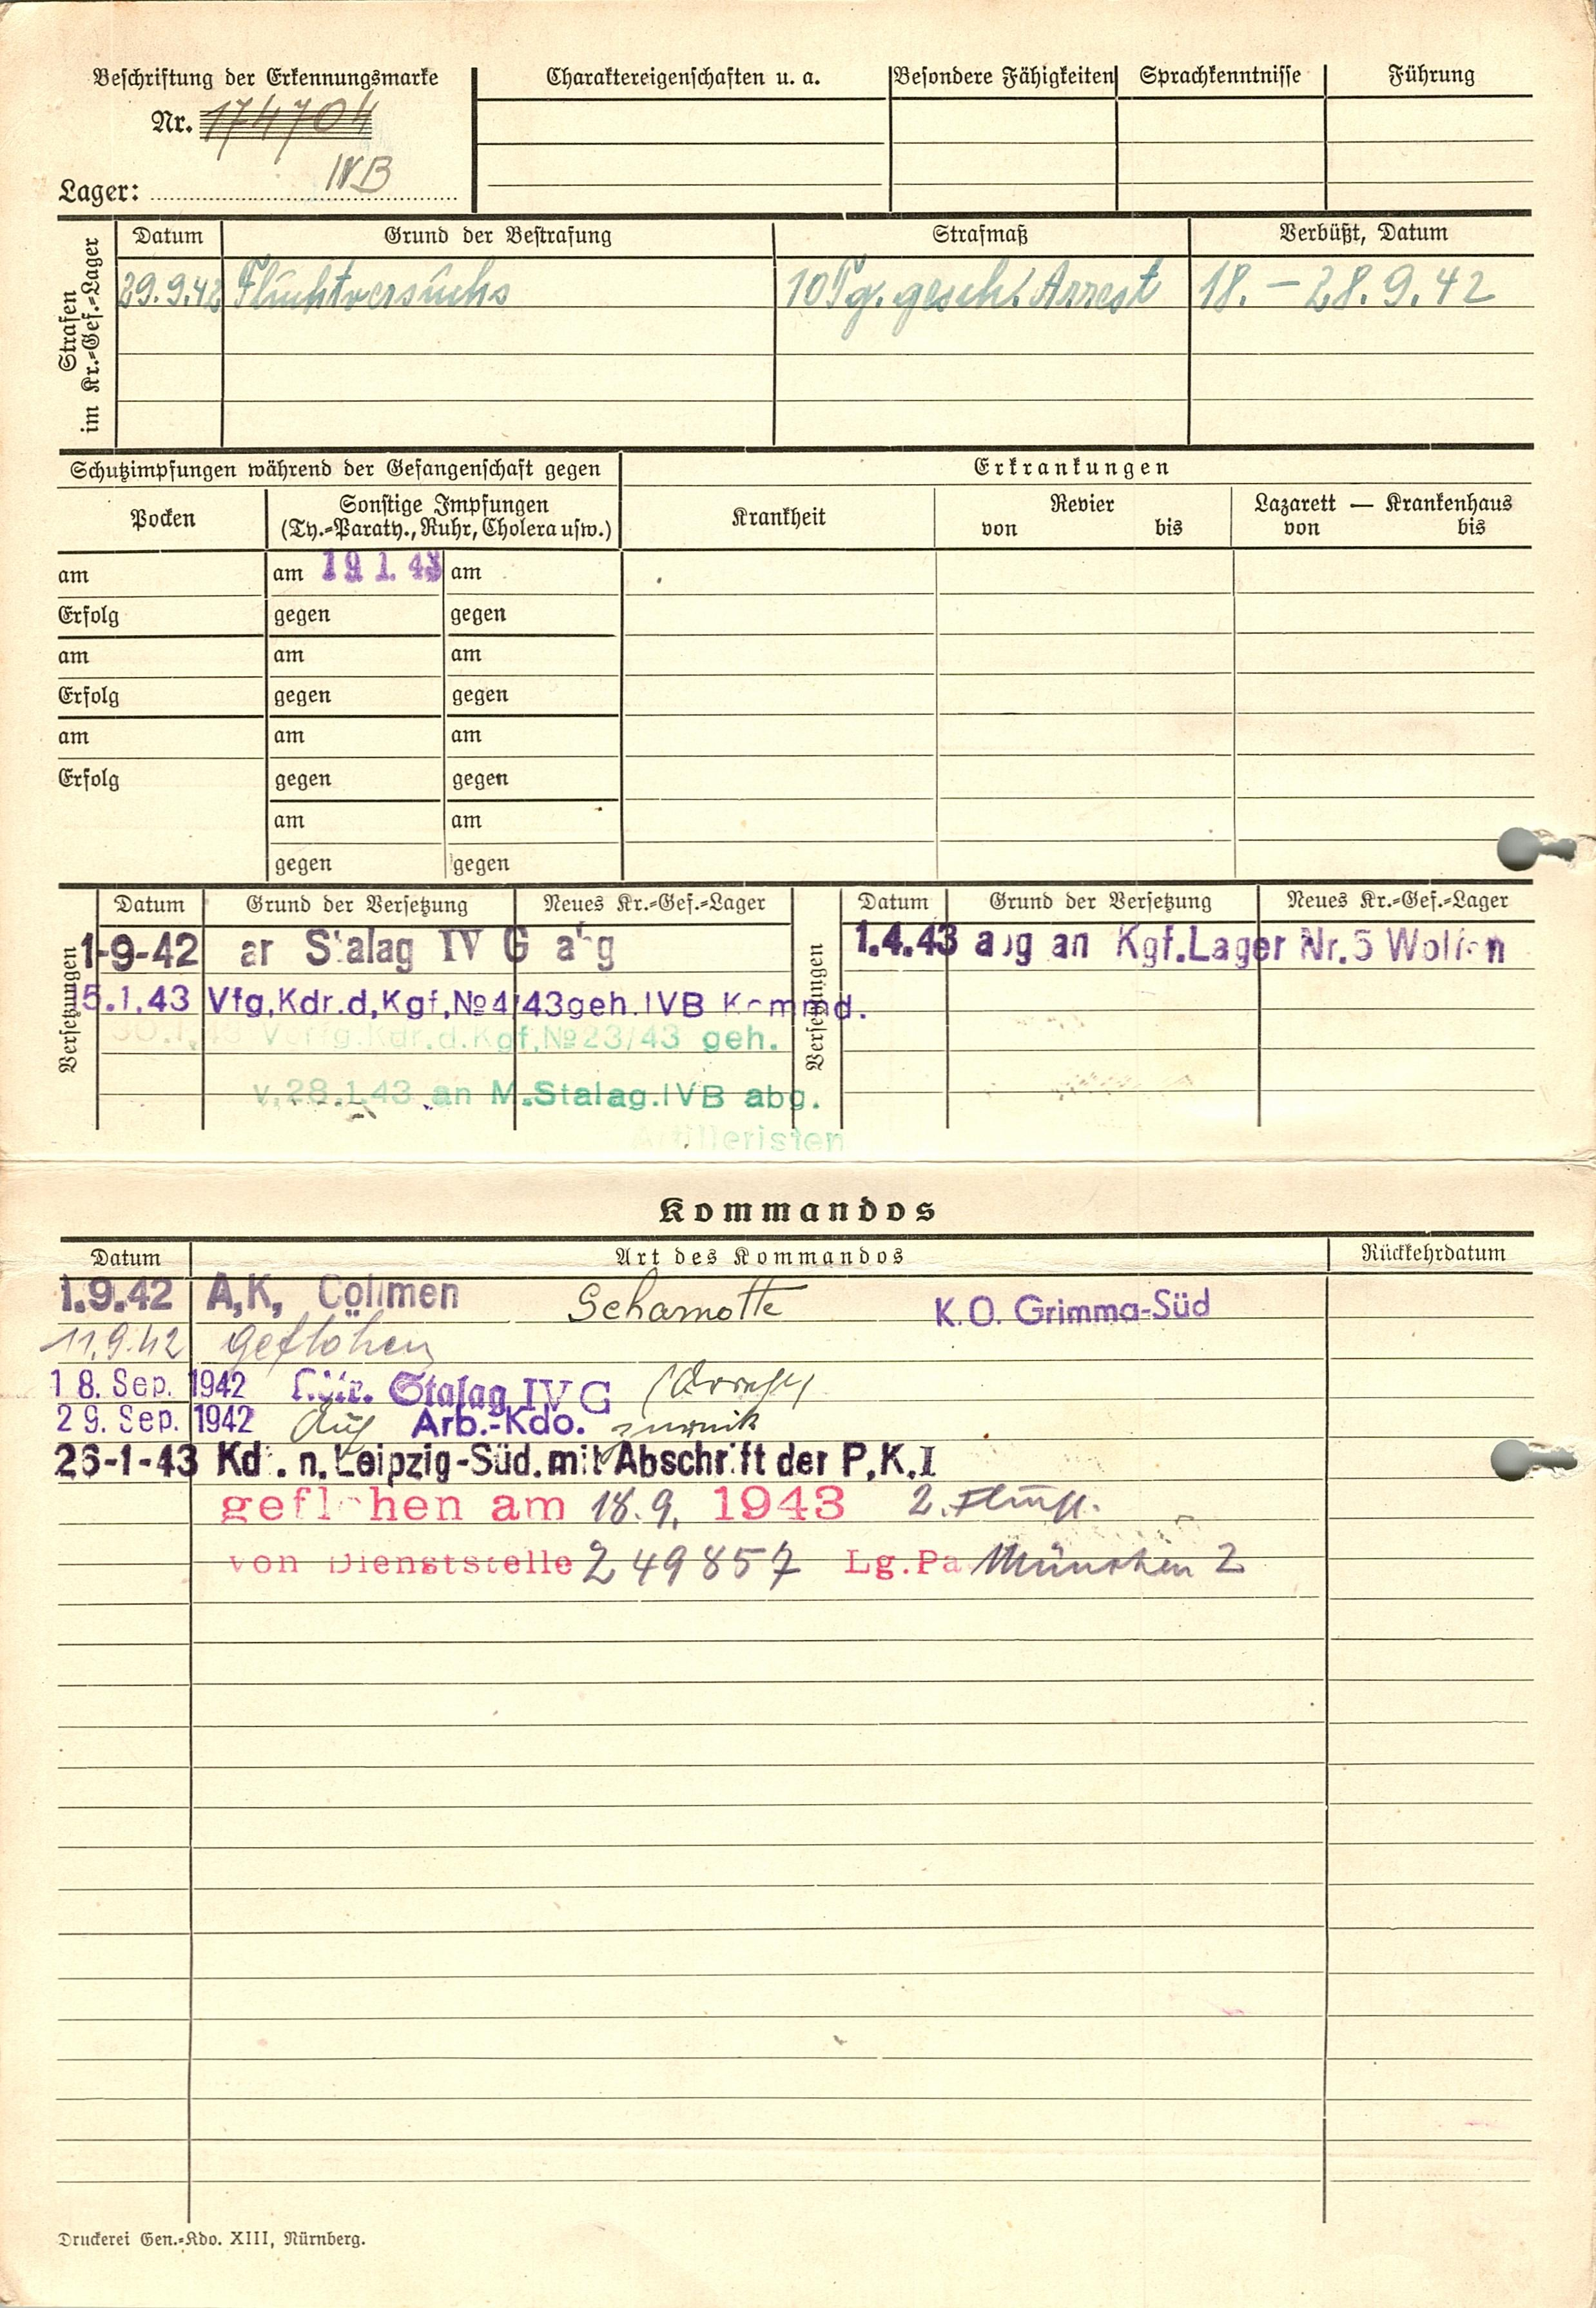 Beschriftung der Erkennungsmarke
Nr. 174704
Lager: IVB
Charaktereigenschaften u. a.
Besondere Fähigkeiten
Sprachkenntnisse
Führung
Strafen im Kr.-Gef.-Lager
Datum Grund der Bestrafung Strafmaß Verbüßt, Datum
29.9.42 Fluchtversuchs 10 Tg. gesch. Arrest 18. – 28.9.42
Schutzimpfungen während der Gefangenschaft gegen
Erkrankungen
Pocken
Sonstige Impfungen
(Ty.-Paraty., Ruhr, Cholera usw.)
Krankheit
Revier
von bis
Lazarett — Krankenhaus
von bis
am am 19 1. 43 am
Erfolg gegen gegen
am am am
Erfolg gegen gegen
am am am
Erfolg gegen gegen
am am
gegen gegen
Versetzungen
Datum Grund der Versetzung Neues Kr.-Gef.-Lager
1-9-42 Stalag IV G
5.1.43 Vfg,Kdr.d,Kgf,№4/43geh.IVB Kommd.
30.1.43 Verfg.Kdr.d.Kgf,№23/43 geh.
v.28.1.43 an M.Stalag.IVB abg.
Artilleristen
Versetzungen
Datum Grund der Versetzung Neues Kr.-Gef.-Lager
1.4.43 abg an Kgf.Lager Nr.5 Wolfen
Kommandos
Datum Art des Kommandos Rückkehrdatum
1.9.42 A,K, Cöllmen Schamotte K.O. Grimma-Süd
11.9.42 geflohen
18. Sep. 1942 Stalag IV G
29. Sep. 1942 Auf Arb.-Kdo. zurück
26-1-43 Kdr. n. Leipzig-Süd. mit Abschrift der P.K.I
geflohen am 18.9. 1943 2.
von Dienststelle 249857 Lg.Pa München 2
Druckerei Gen.-Kdo. XIII, Nürnberg.